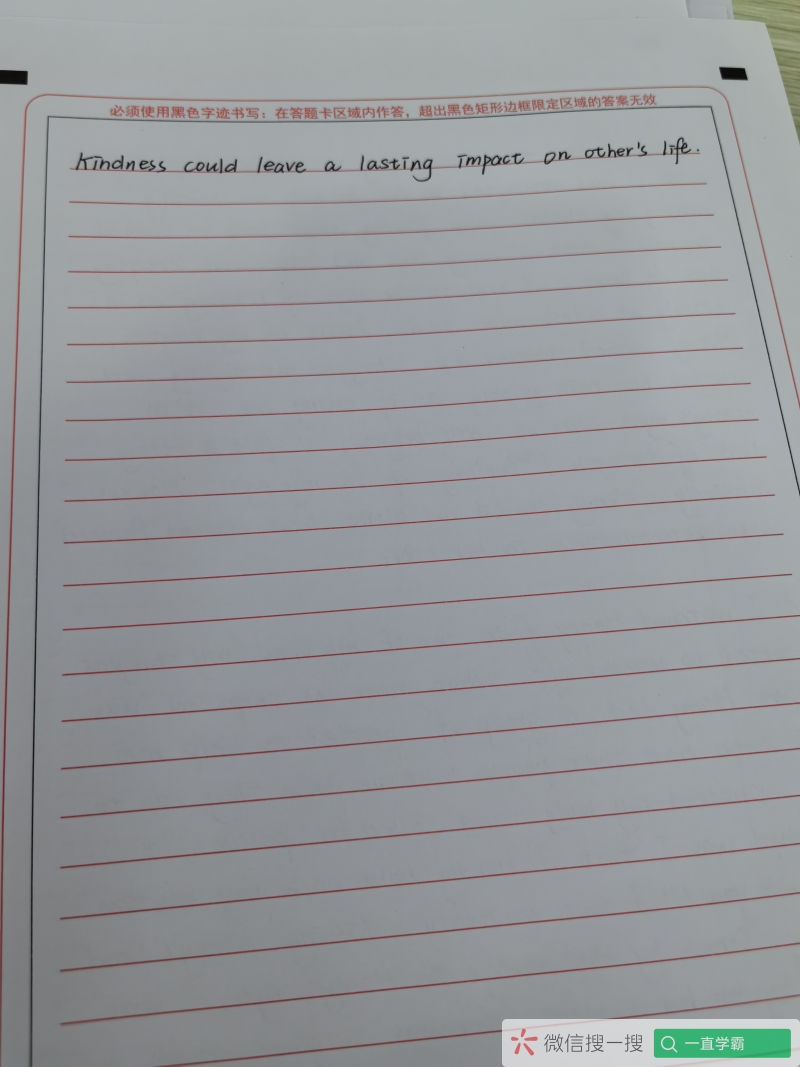 必须使用黑色字迹书写：在答题卡区域内作答，超出黑色矩形边框限定区域的答案无效
Kindness could leave a lasting impact on other's life.
微信搜一搜 一直学霸